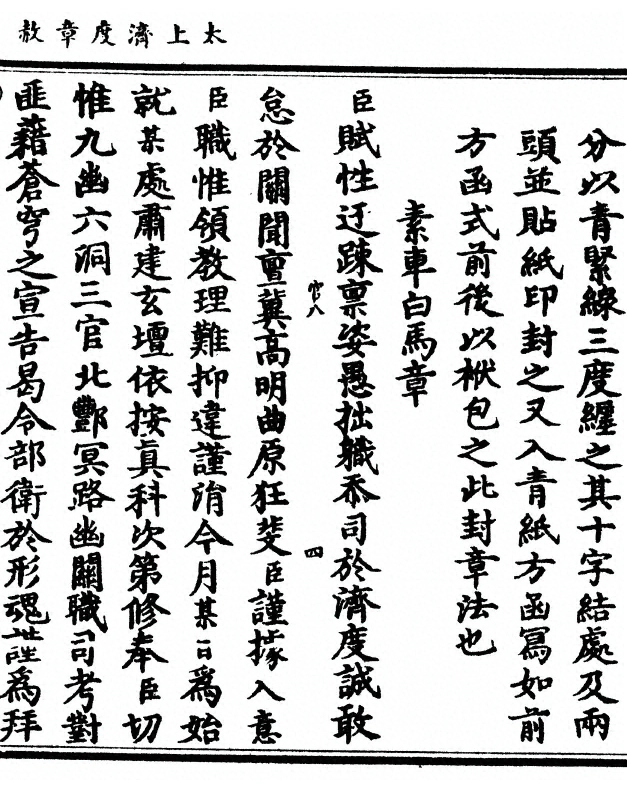 太上濟度章赦
分以青緊線三度纏之其十字結處及兩
頭並貼紙印封之又入青紙方函寫如前
方函式前後以袱包之此封章法也
素車白馬章
臣賦性迂踈禀姿愚拙職忝司於濟度誠敢
官八
四
怠於關聞亶冀高明曲原狂斐臣謹據入意
臣職惟領教理難抑違謹涓今月某日為始
就某處肅建玄壇依按真科次第修奉臣切
惟九幽六洞三官北酆冥路幽關職司考對
匪藉蒼穹之宣告曷令部衛於形魂謹為拜